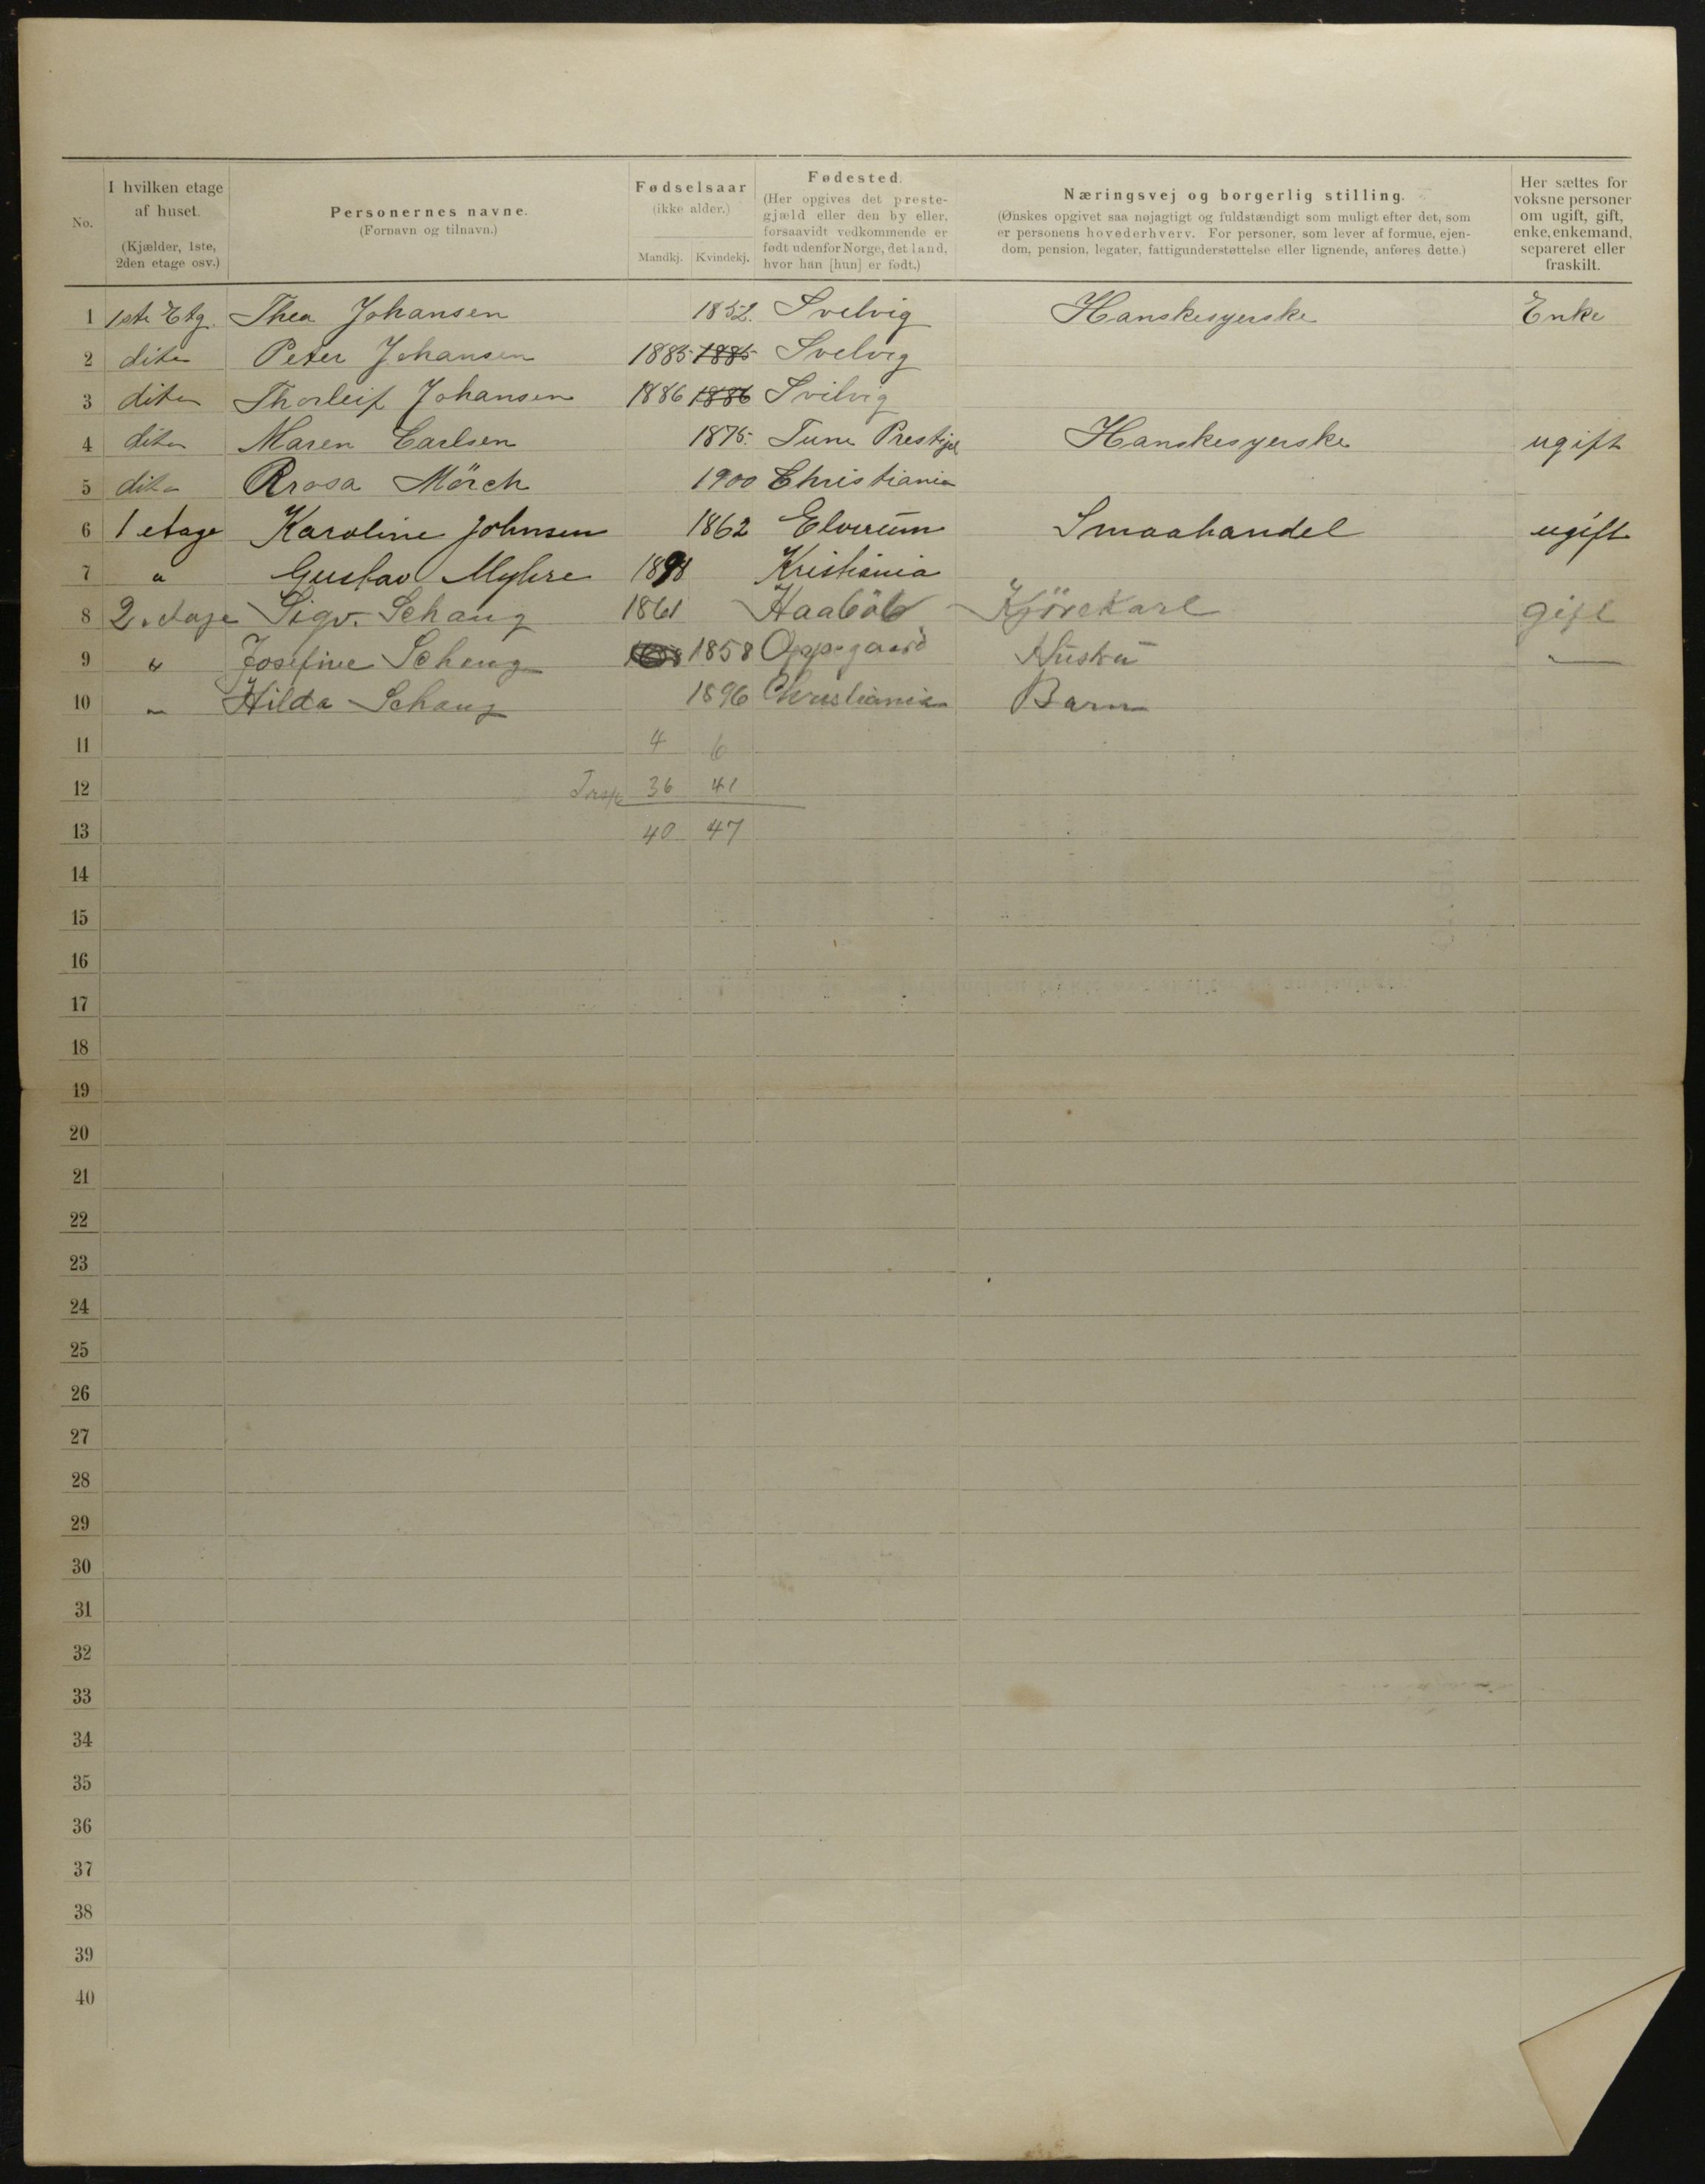 No.
I hvilken etage af huset. (Kjælder, 1ste, 2den etage osv.)
Personernes navne. (Fornavn og tilnavn.)
Fødselsaar (ikke alder.) Mandkj. Kvindekj.
Fødested. (Her opgives det prestegjæld eller den by eller, forsaavidt vedkommende er født udenfor Norge, det land, hvor han [hun] er født.)
Næringsvej og borgerlig stilling. (Ønskes opgivet saa nøjagtigt og fuldstændigt som muligt efter det, som er personens hovederhverv. For personer, som lever af formue, ejendom, pension, legater, fattigunderstøttelse eller lignende, anføres dette.)
Her sættes for voksne personer om ugift, gift, enke, enkemand, separeret eller fraskilt.
1 1ste Etg. Thea Johansen 1852. Svelvig Hanskesyerske Enke
2 dito Peter Johansen 1885 1885 Svelvig
3 dito Thorleif Johansen 1886 1886 Svilvig
4 dito Maren Carlsen 1875. Tune Prestgjel Hanskesyerske ugift
5 dito Rrosa Mörch 1900 Christiania
6 1 etage Karoline Johnsen 1862 Elverum Smaahandel ugift
7 " Gustav Myhre 1898 Kristiania
8 2. etage Sigv. Schaug 1861 Haaböl Kjörekarl gift
9 " Josefine Schaug 1858 1858 Oppegaard Hustru —
10 " Hilda Schaug 1896 Christiania Barn
11 4 6
12 Trsp 36 41
13 40 47
14
15
16
17
18
19
20
21
22
23
24
25
26
27
28
29
30
31
32
33
34
35
36
37
38
39
40